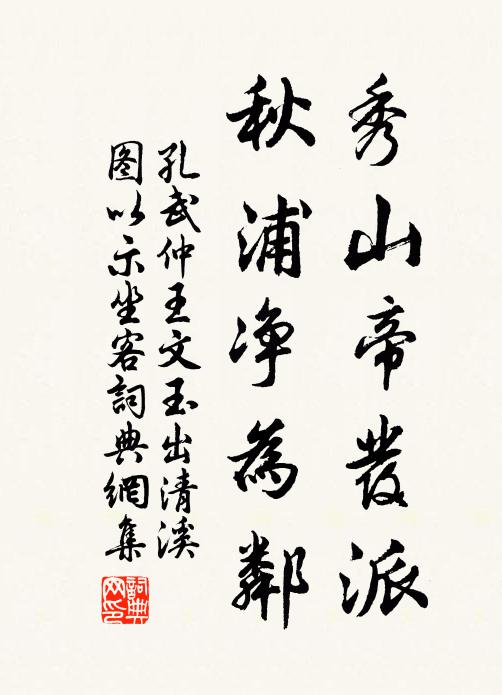 秀山帝發派
秋浦净為鄰
孔武仲王文玉出清溪
图以示坐客詞典網集
詞典
网印